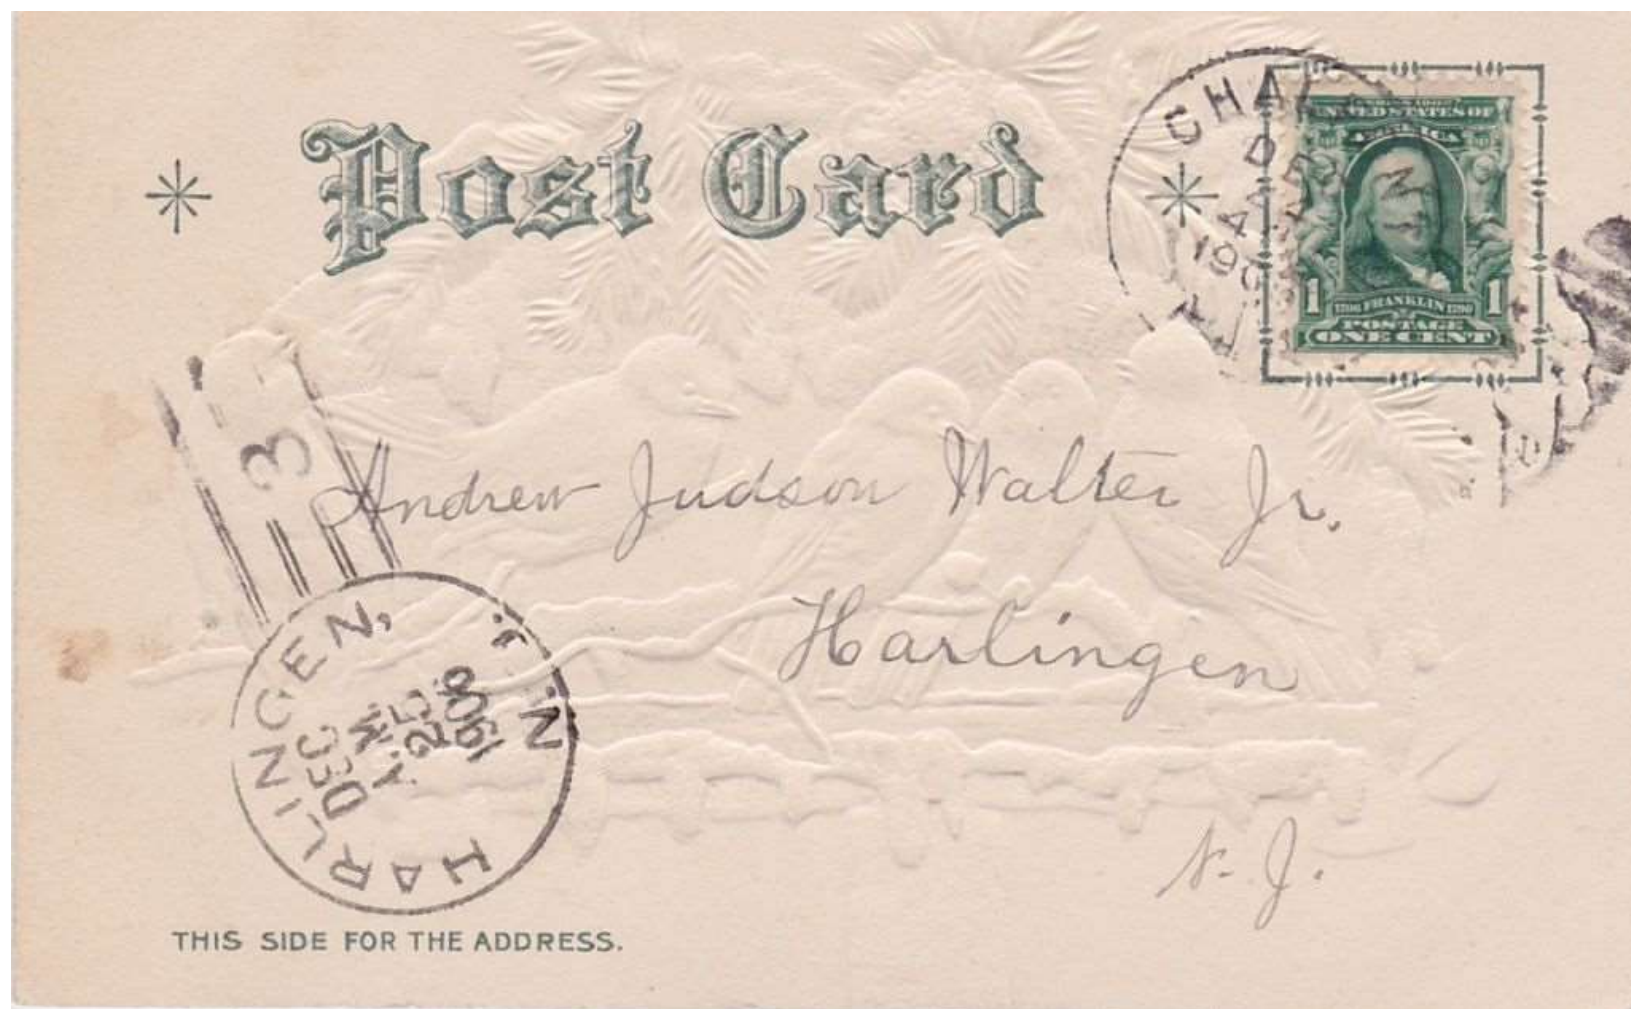 Post Card
UNITED STATES OF
AMERICA
1 1706 FRANKLIN 1790 1
POSTAGE
ONE CENT
3
Andrew Judson Walter Jr.
Harlingen
N. J.
HARLINGEN, N. J.
DEC
A.M.
25
1906
THIS SIDE FOR THE ADDRESS.